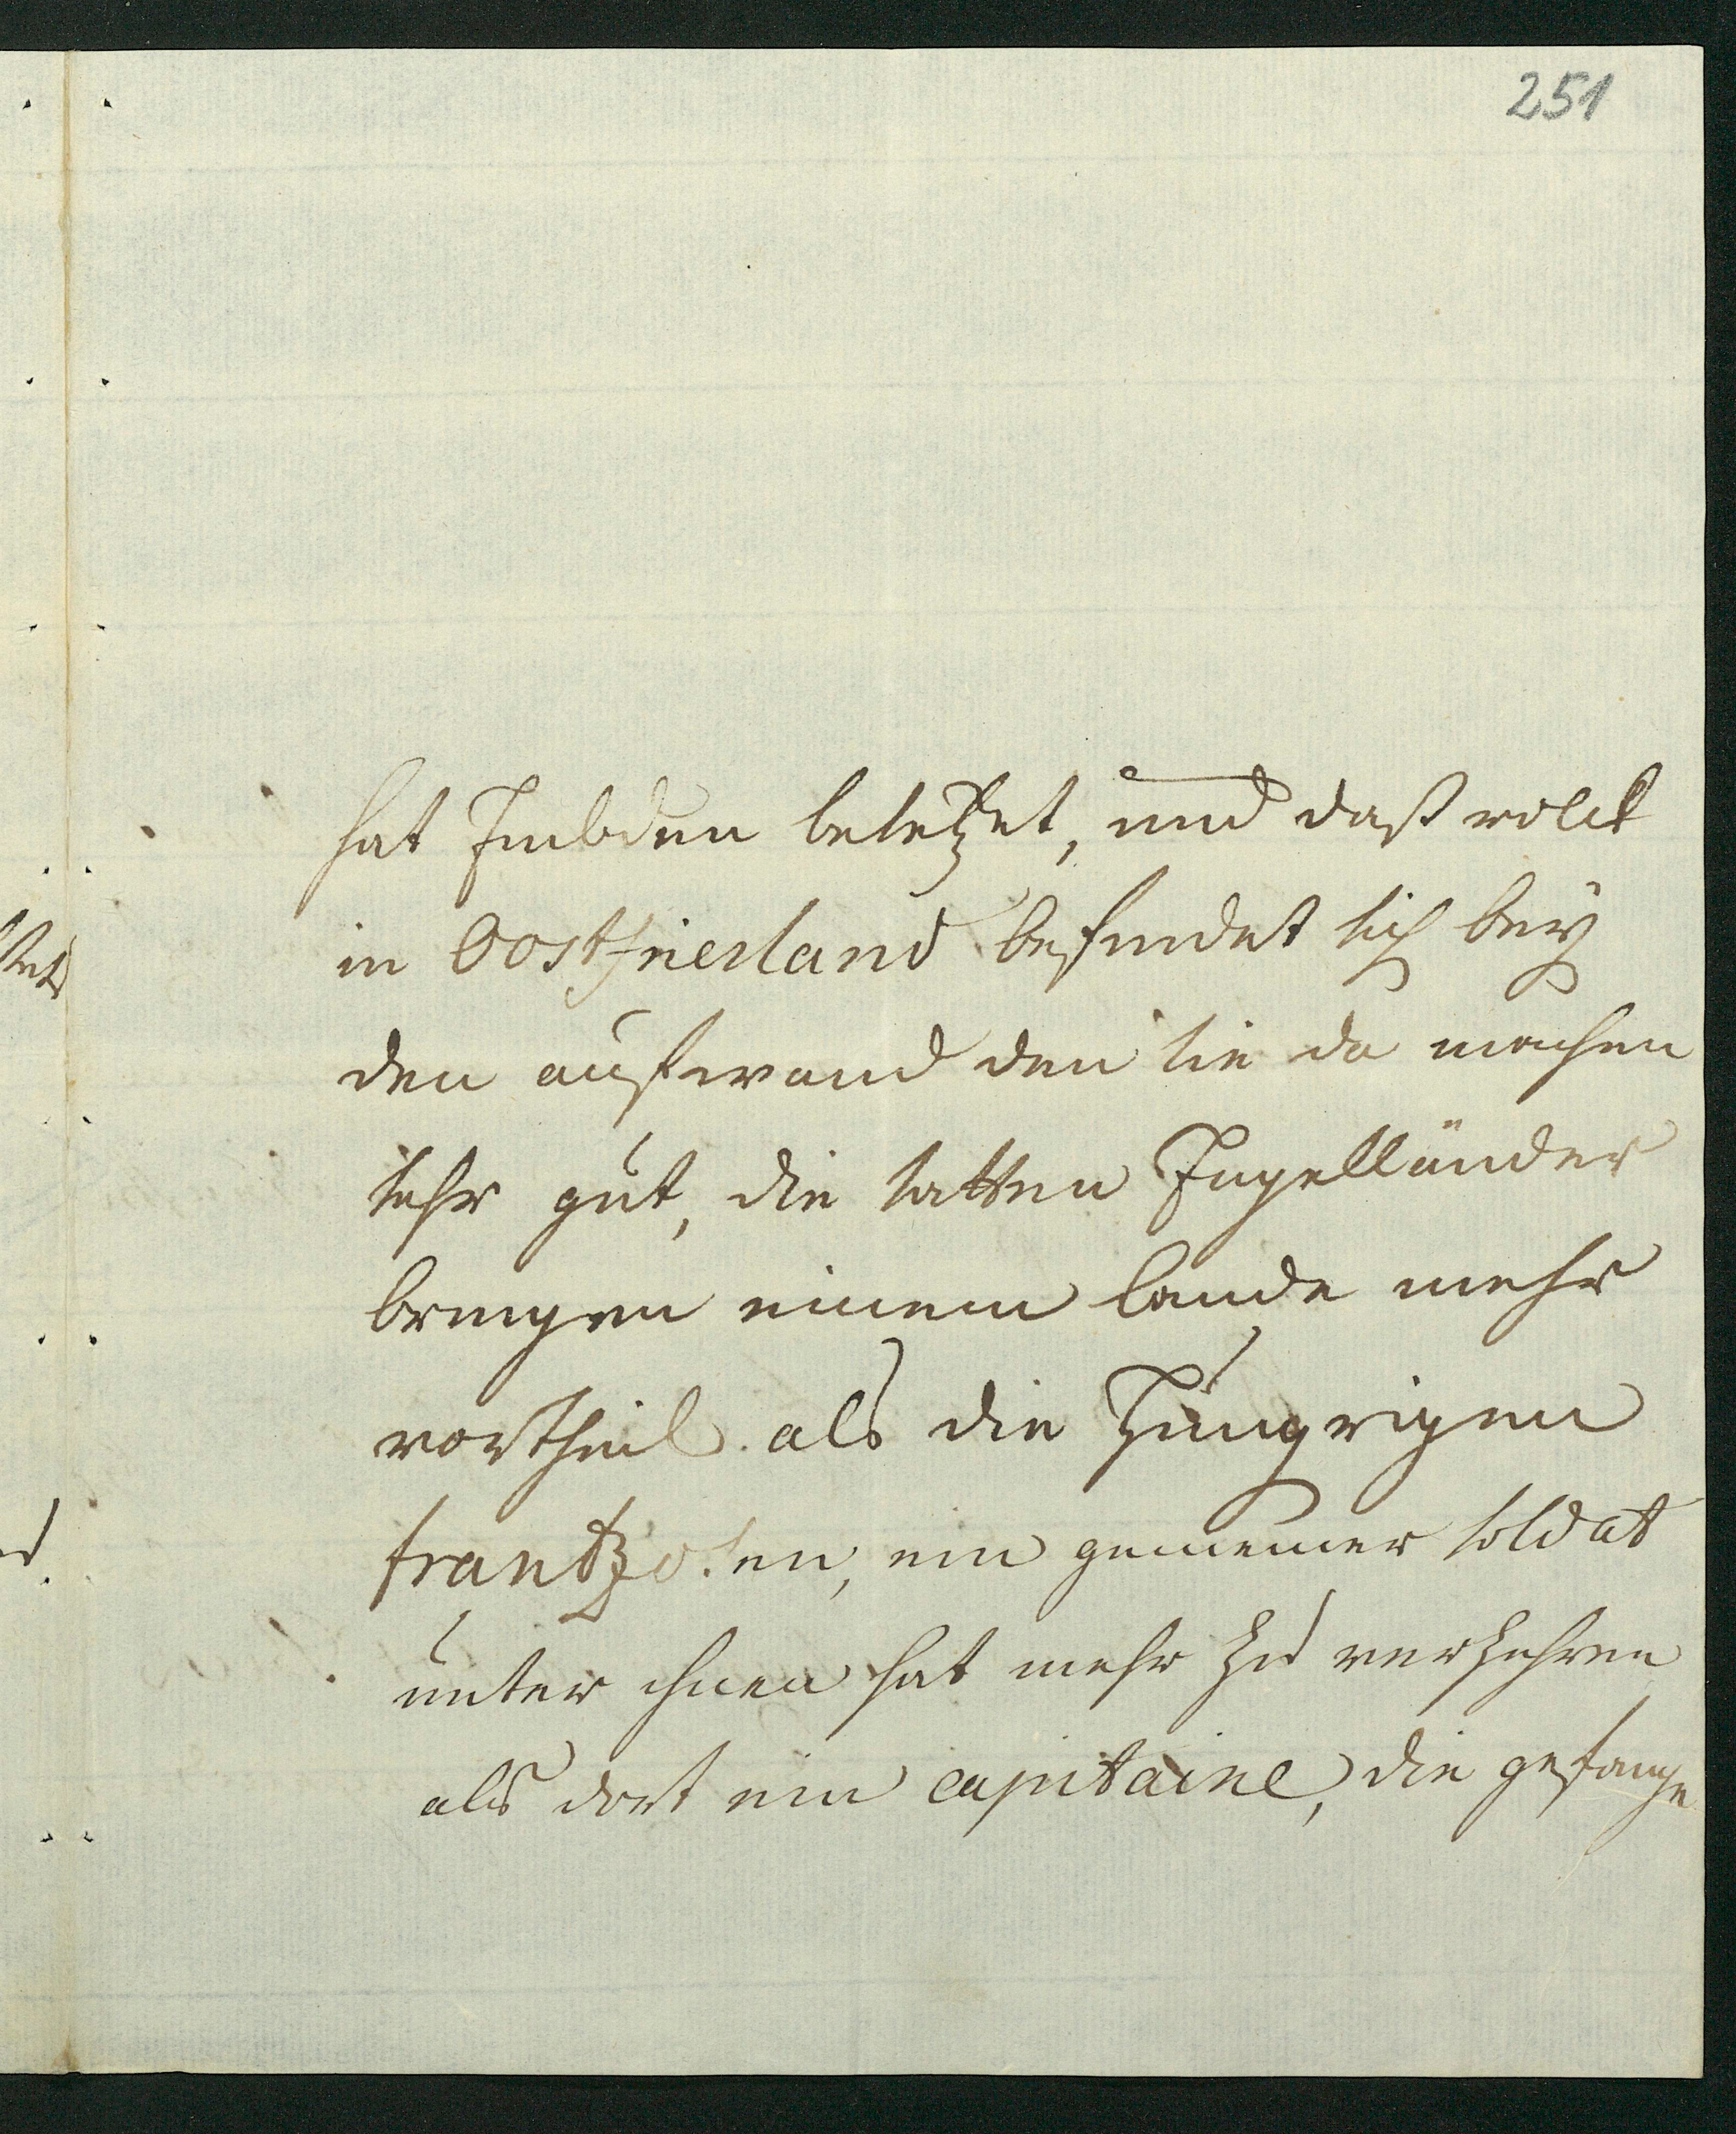 251
hat Embden besetzet, und daß volck
in Oostfriesland befindet sich bey
den aufwand den sie da machen
sehr gut, die satten Engelländer
bringen einem lande mehr
vortheil als die hungrigen
frantzosen, ein gemeiner soldat
unter ihnen hat mehr zu verzehren
als dort ein capitaine, die gefange